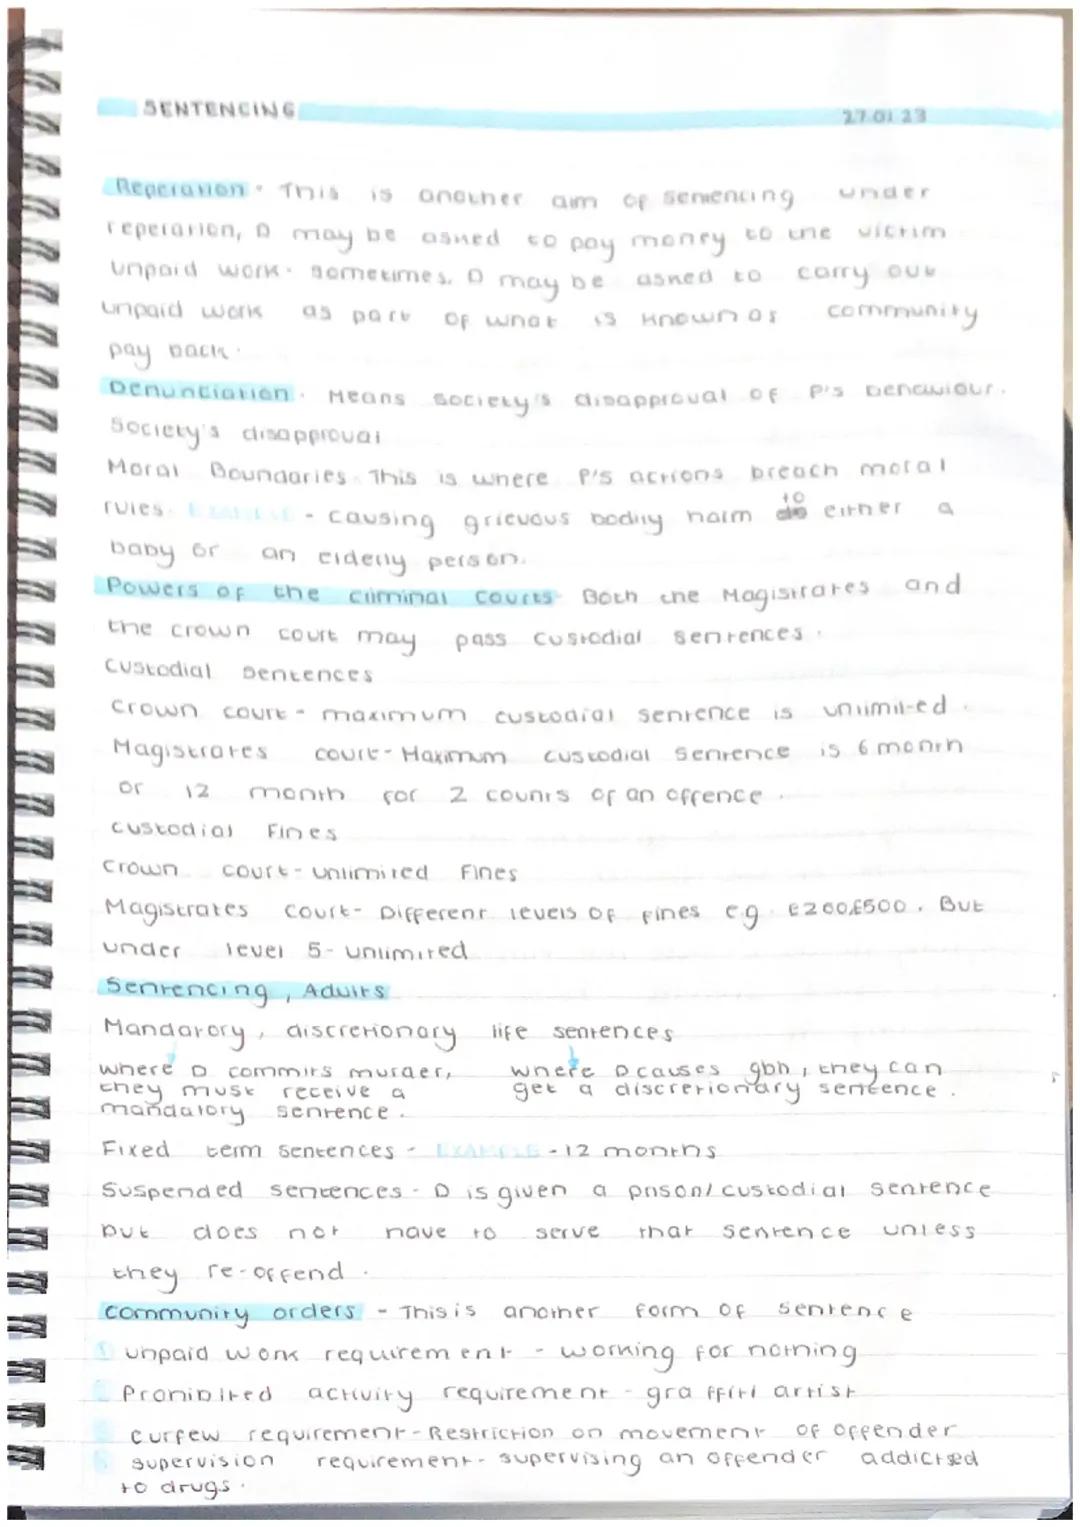 SENTENCING 27.01.23
Reperation - This is another aim of sentencing under
reperation, D may be asked to pay money to the victim
unpaid work. sometimes, D may be asked to carry out
unpaid work as part of what is known as community
pay back.
Denunciation. Means society's disapproval of P's behawiour.
Society's disapproval
Moral Boundaries. This is where P's actions breach moral
rules. EXAMPLE - causing grievous bodily harm to either a
baby or an elderly person.
Powers of the criminal courts - Both the Magistrates and
the crown court may pass custodial sentences.
Custodial sentences
Crown court - maximum custodial sentence is unlimited.
Magistrates court - Maximum custodial sentence is 6 month
or 12 month for 2 counts of an offence.
Custodial Fines
Crown court - unlimited Fines
Magistrates court - Different levels of fines eg. £200,£500. But
under level 5 - unlimited
Sentencing, Adults
Mandatory, discretionary life sentences
where D commits murder, where D causes gbh, they can
they must receive a get a discretionary sentence.
mandatory sentence.
Fixed term sentences - EXAMPLE - 12 months
Suspended sentences - D is given a prison/custodial sentence
but does not have to serve that sentence unless
they re-offend.
Community orders - This is another form of sentence
unpaid work requirement - working for nothing
Prohibited activity requirement - graffiti artist
curfew requirement - Restriction on movement of offender
supervision requirement - supervising an offender addicted
to drugs.